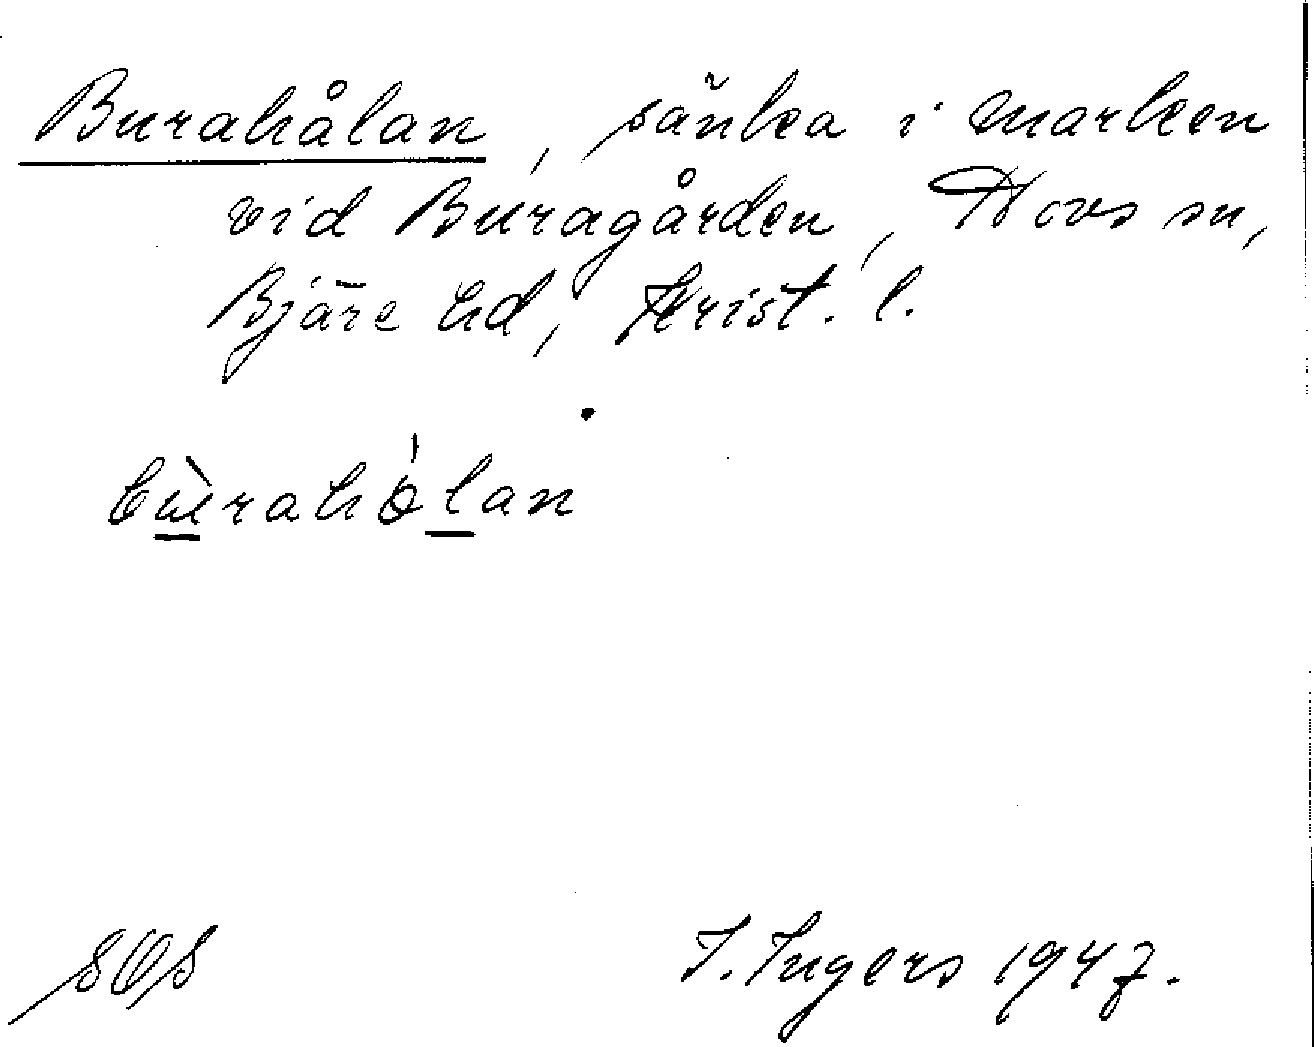 Burahålan, sänka i marken
vid Buragården, Hovs sn,
Bjäre hd, Krist. l.
bùrahólan
I. Ingers 1947.